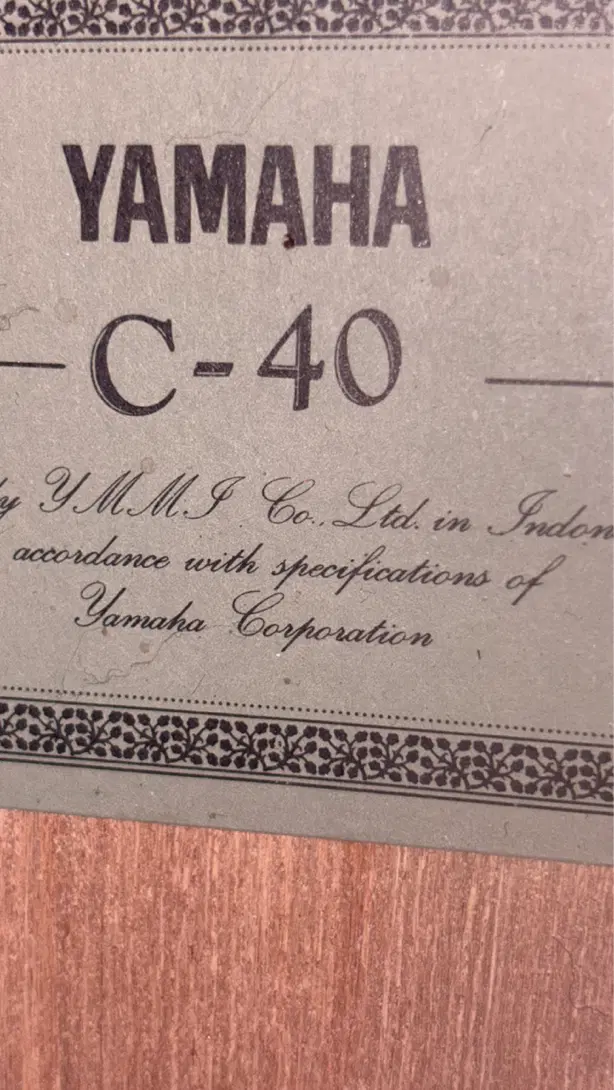 YAMAHA
C-40
by Y M M I Co., Ltd. in Indon
accordance with specifications of
Yamaha Corporation